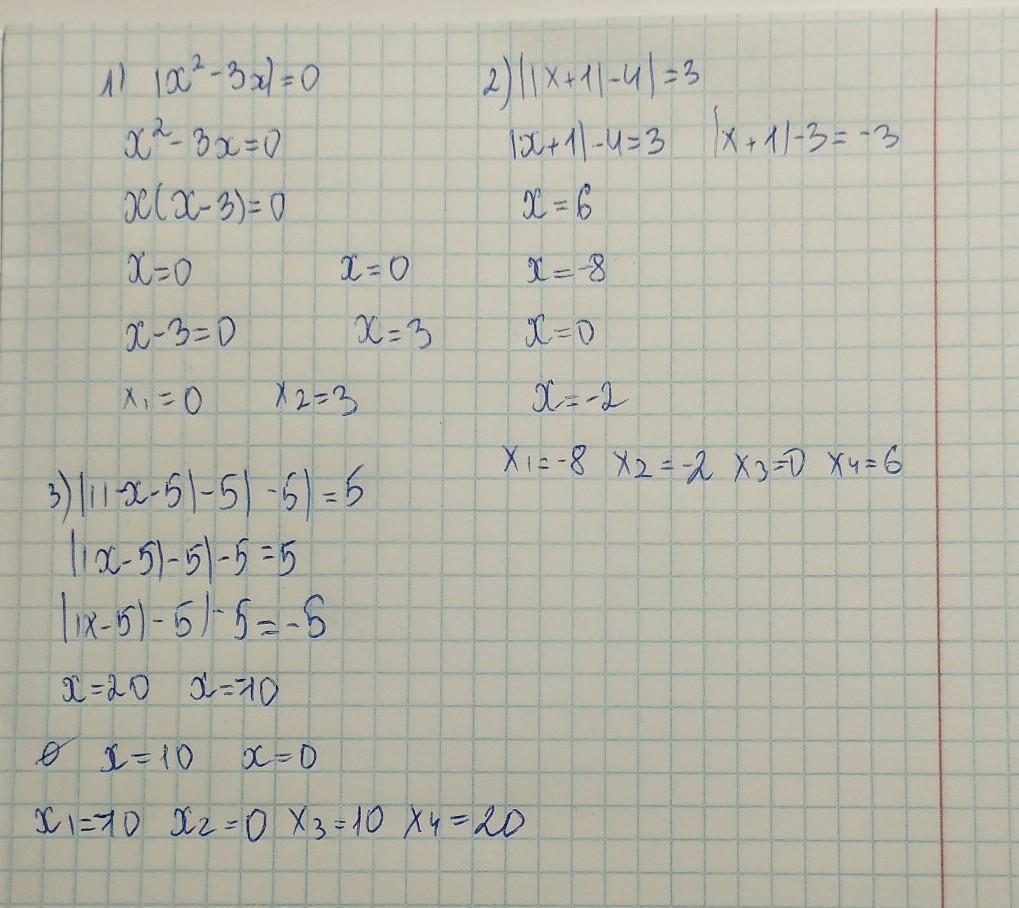 1) |x²-3x|=0
x²-3x=0
x(x-3)=0
x=0 x=0
x-3=0 x=3
x₁=0 x₂=3
2) ||x+1|-4|=3
|x+1|-4=3 |x+1|-3=-3
x=6
x=-8
x=0
x=-2
x₁=-8 x₂=-2 x₃=0 x₄=6
3) |||x-5|-5|-5|=5
||x-5|-5|-5=5
||x-5|-5|-5=-5
x=20 x=-10
∅ x=10 x=0
x₁=-10 x₂=0 x₃=10 x₄=20